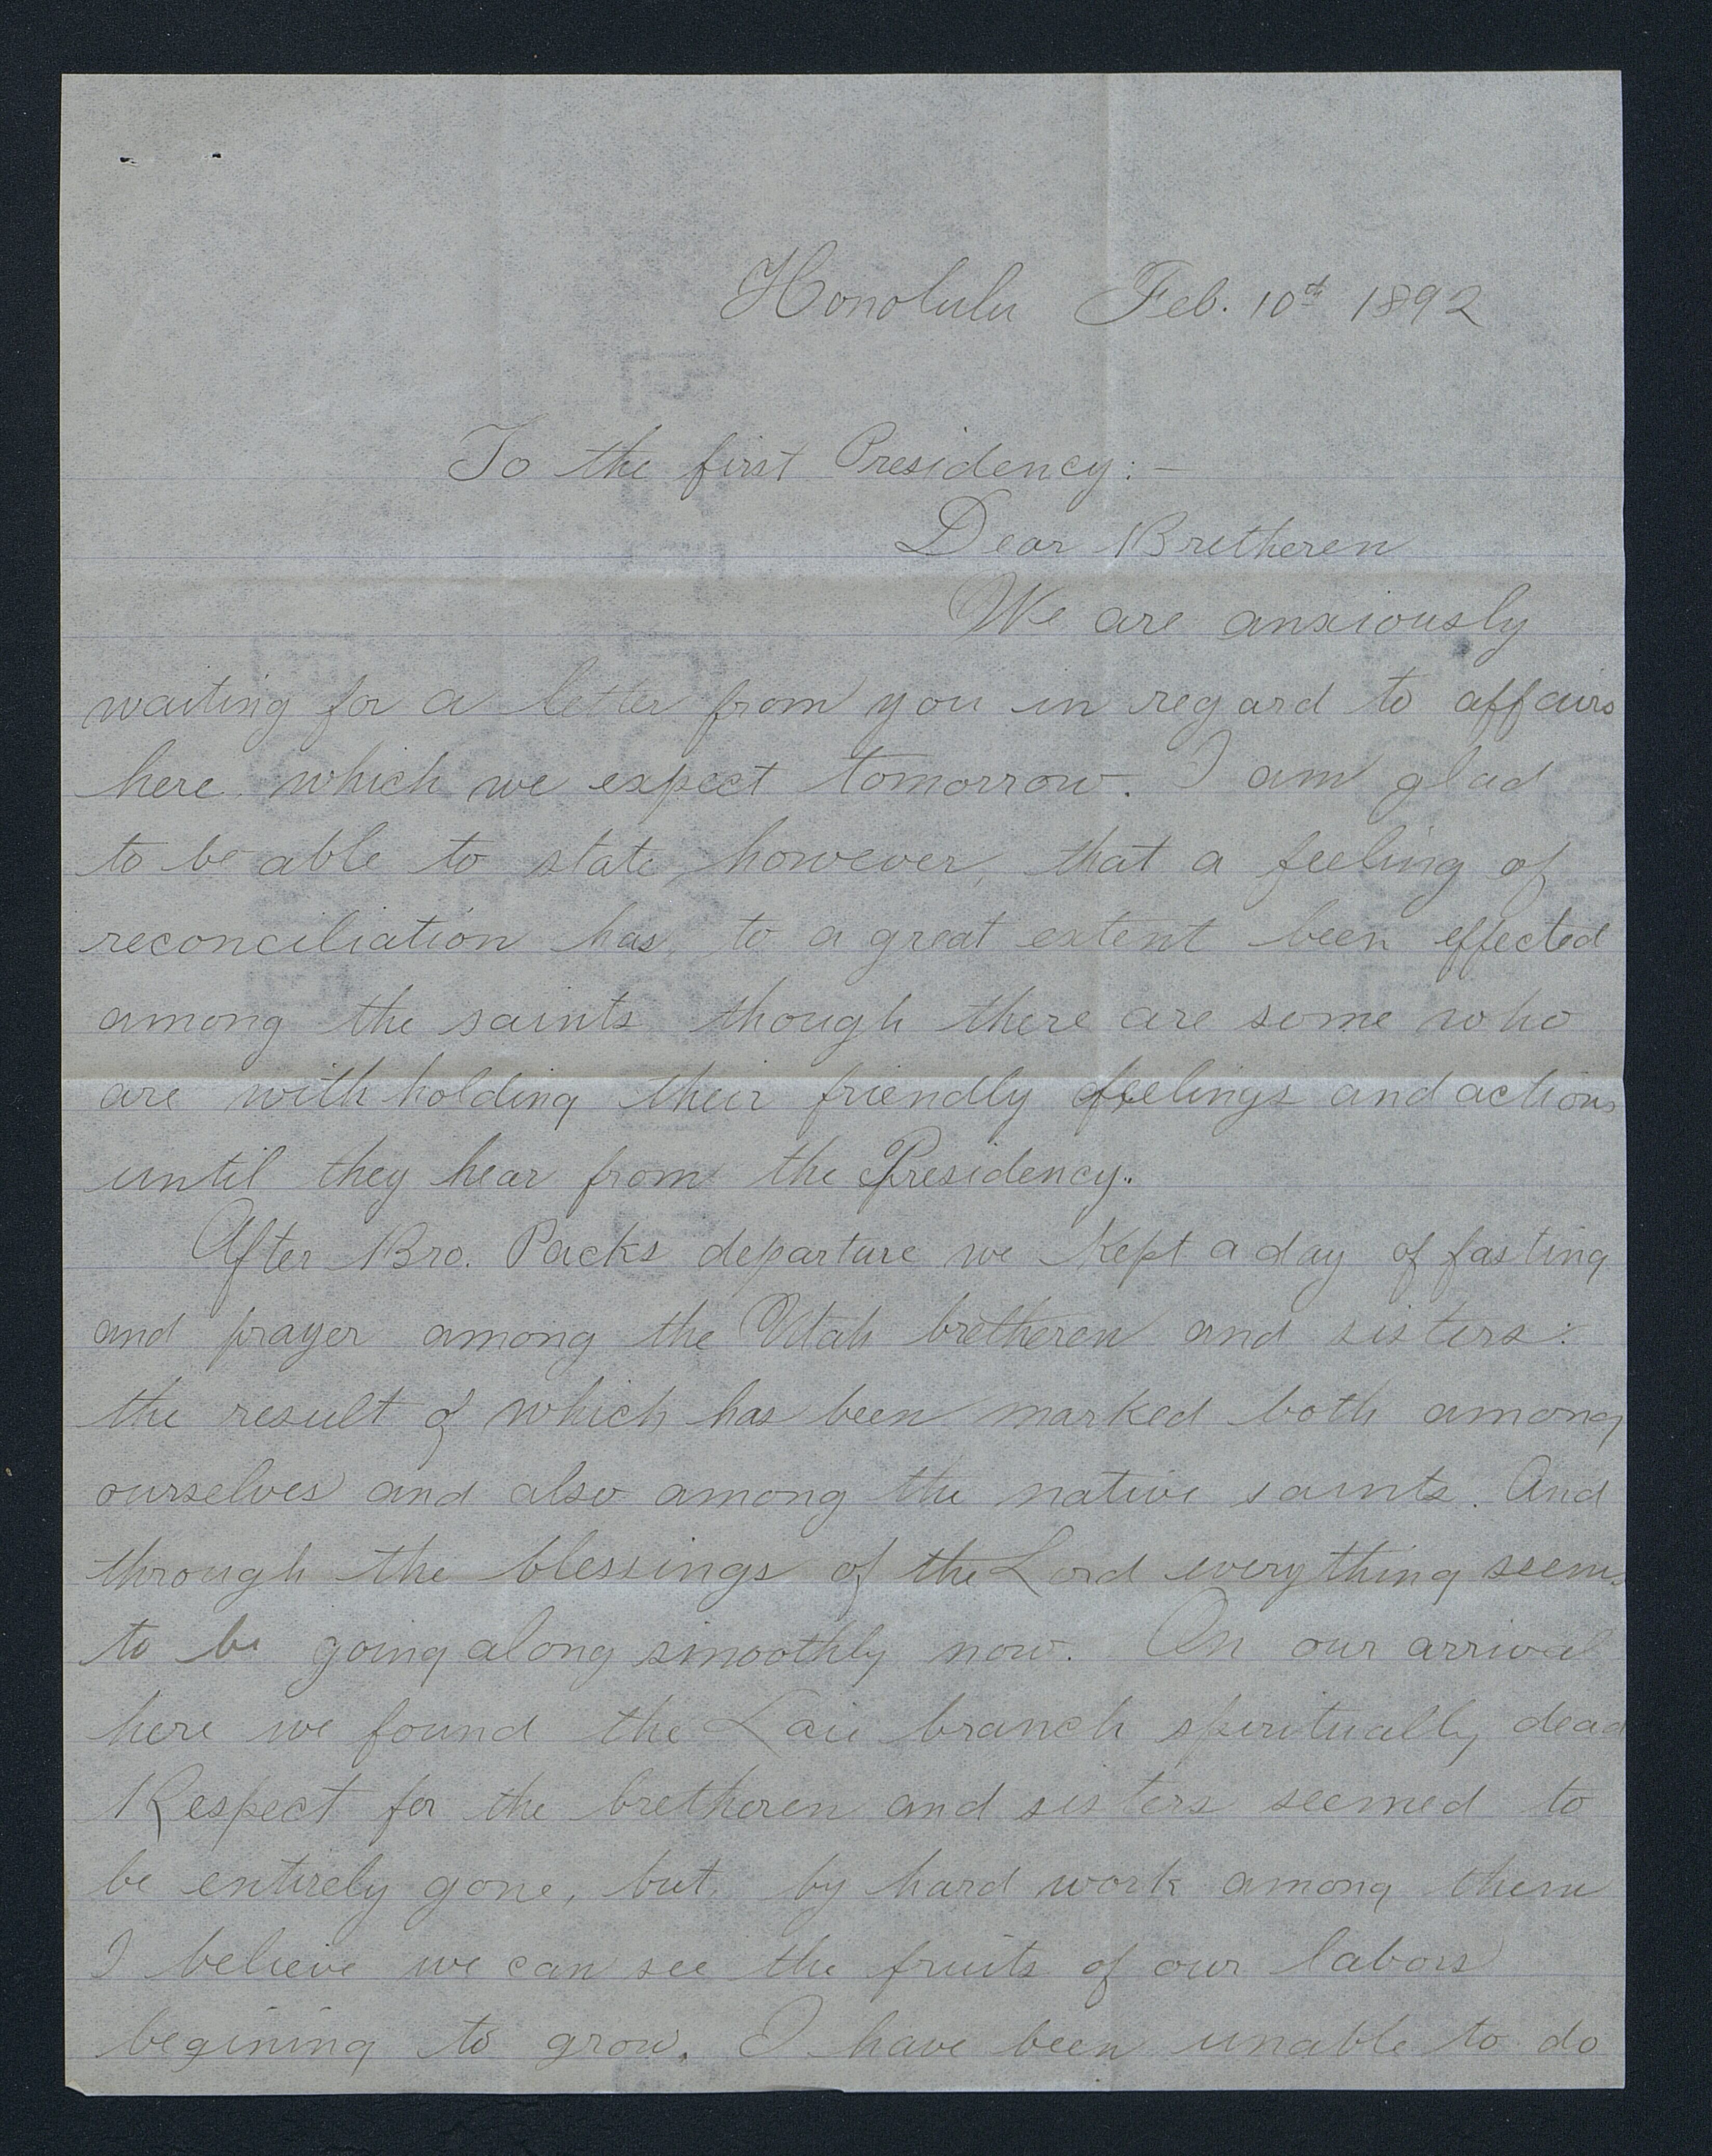 Honolulu Feb. 10th 1892
To the first Presidency:-
Dear Bretheren
We are anxiously
waiting for a letter from you in regard to affairs
here, which we expect tomorrow. I am glad
to be able to state, however, that a feeling of
reconciliation has, to a great extent been effected
among the saints though there are some who
are with holding their friendly feelings and actions
until they hear from the Presidency.
After Bro. Packs departure we kept a day of fasting
and prayer among the Utah bretheren and sisters:
the result of which has been marked both among
ourselves and also among the native saints. And
through the blessings of the Lord everything seems
to be going along smoothly now. On our arrival
here we found the Laie branch spiritually dead
Respect for the bretheren and sisters seemed to
be entirely gone, but, by hard work among them
I believe we can see the fruits of our labors
begining to grow. I have been unable to do